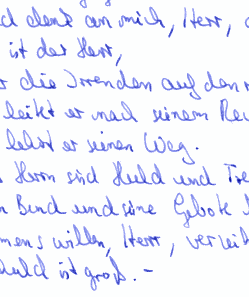 d denk an mich, Herr,
ist der Herr,
r die Irrenden auf den
leitet er nach seinem Re
lehrt er seinen Weg.
Herrn sind Huld und Tre
n Bund und seine Gebote
mens willen, Herr, verzeih
huld ist groß. –